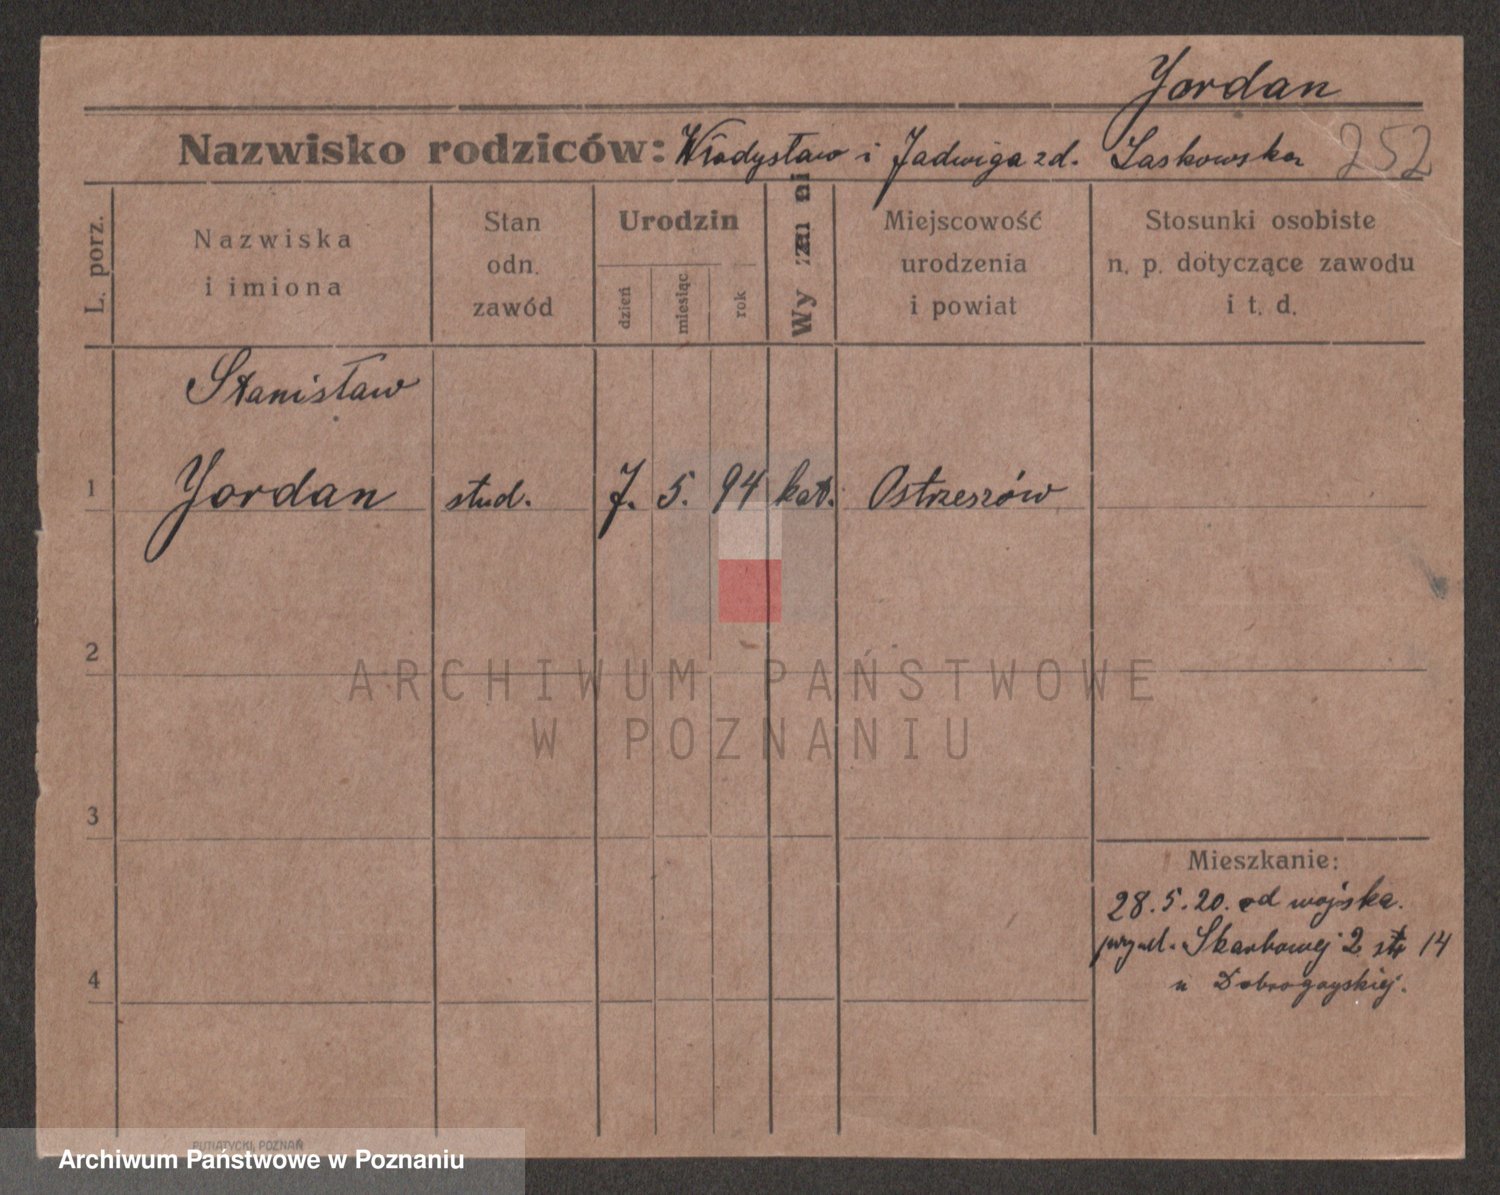 Yordan
Nazwisko rodziców: Władysław i Jadwiga zd. Laskowska 252
L. porz.
Nazwiska
i imiona
Stan
odn.
zawód
Urodzin
dzień
miesiąc
rok
Wy zna ni
Miejscowość
urodzenia
i powiat
Stosunki osobiste
n. p. dotyczące zawodu
i t. d.
Stanisław
1 Yordan stud. 7. 5. 94 kat. Ostrzeszów
2
ARCHIWUM PAŃSTWOWE
W POZNANIU
3
Mieszkanie:
28.5.20. od wojska.
Skarbowej 2 14
u Dobrogoyskiej.
4
PUTIATYCKI, POZNAŃ
Archiwum Państwowe w Poznaniu